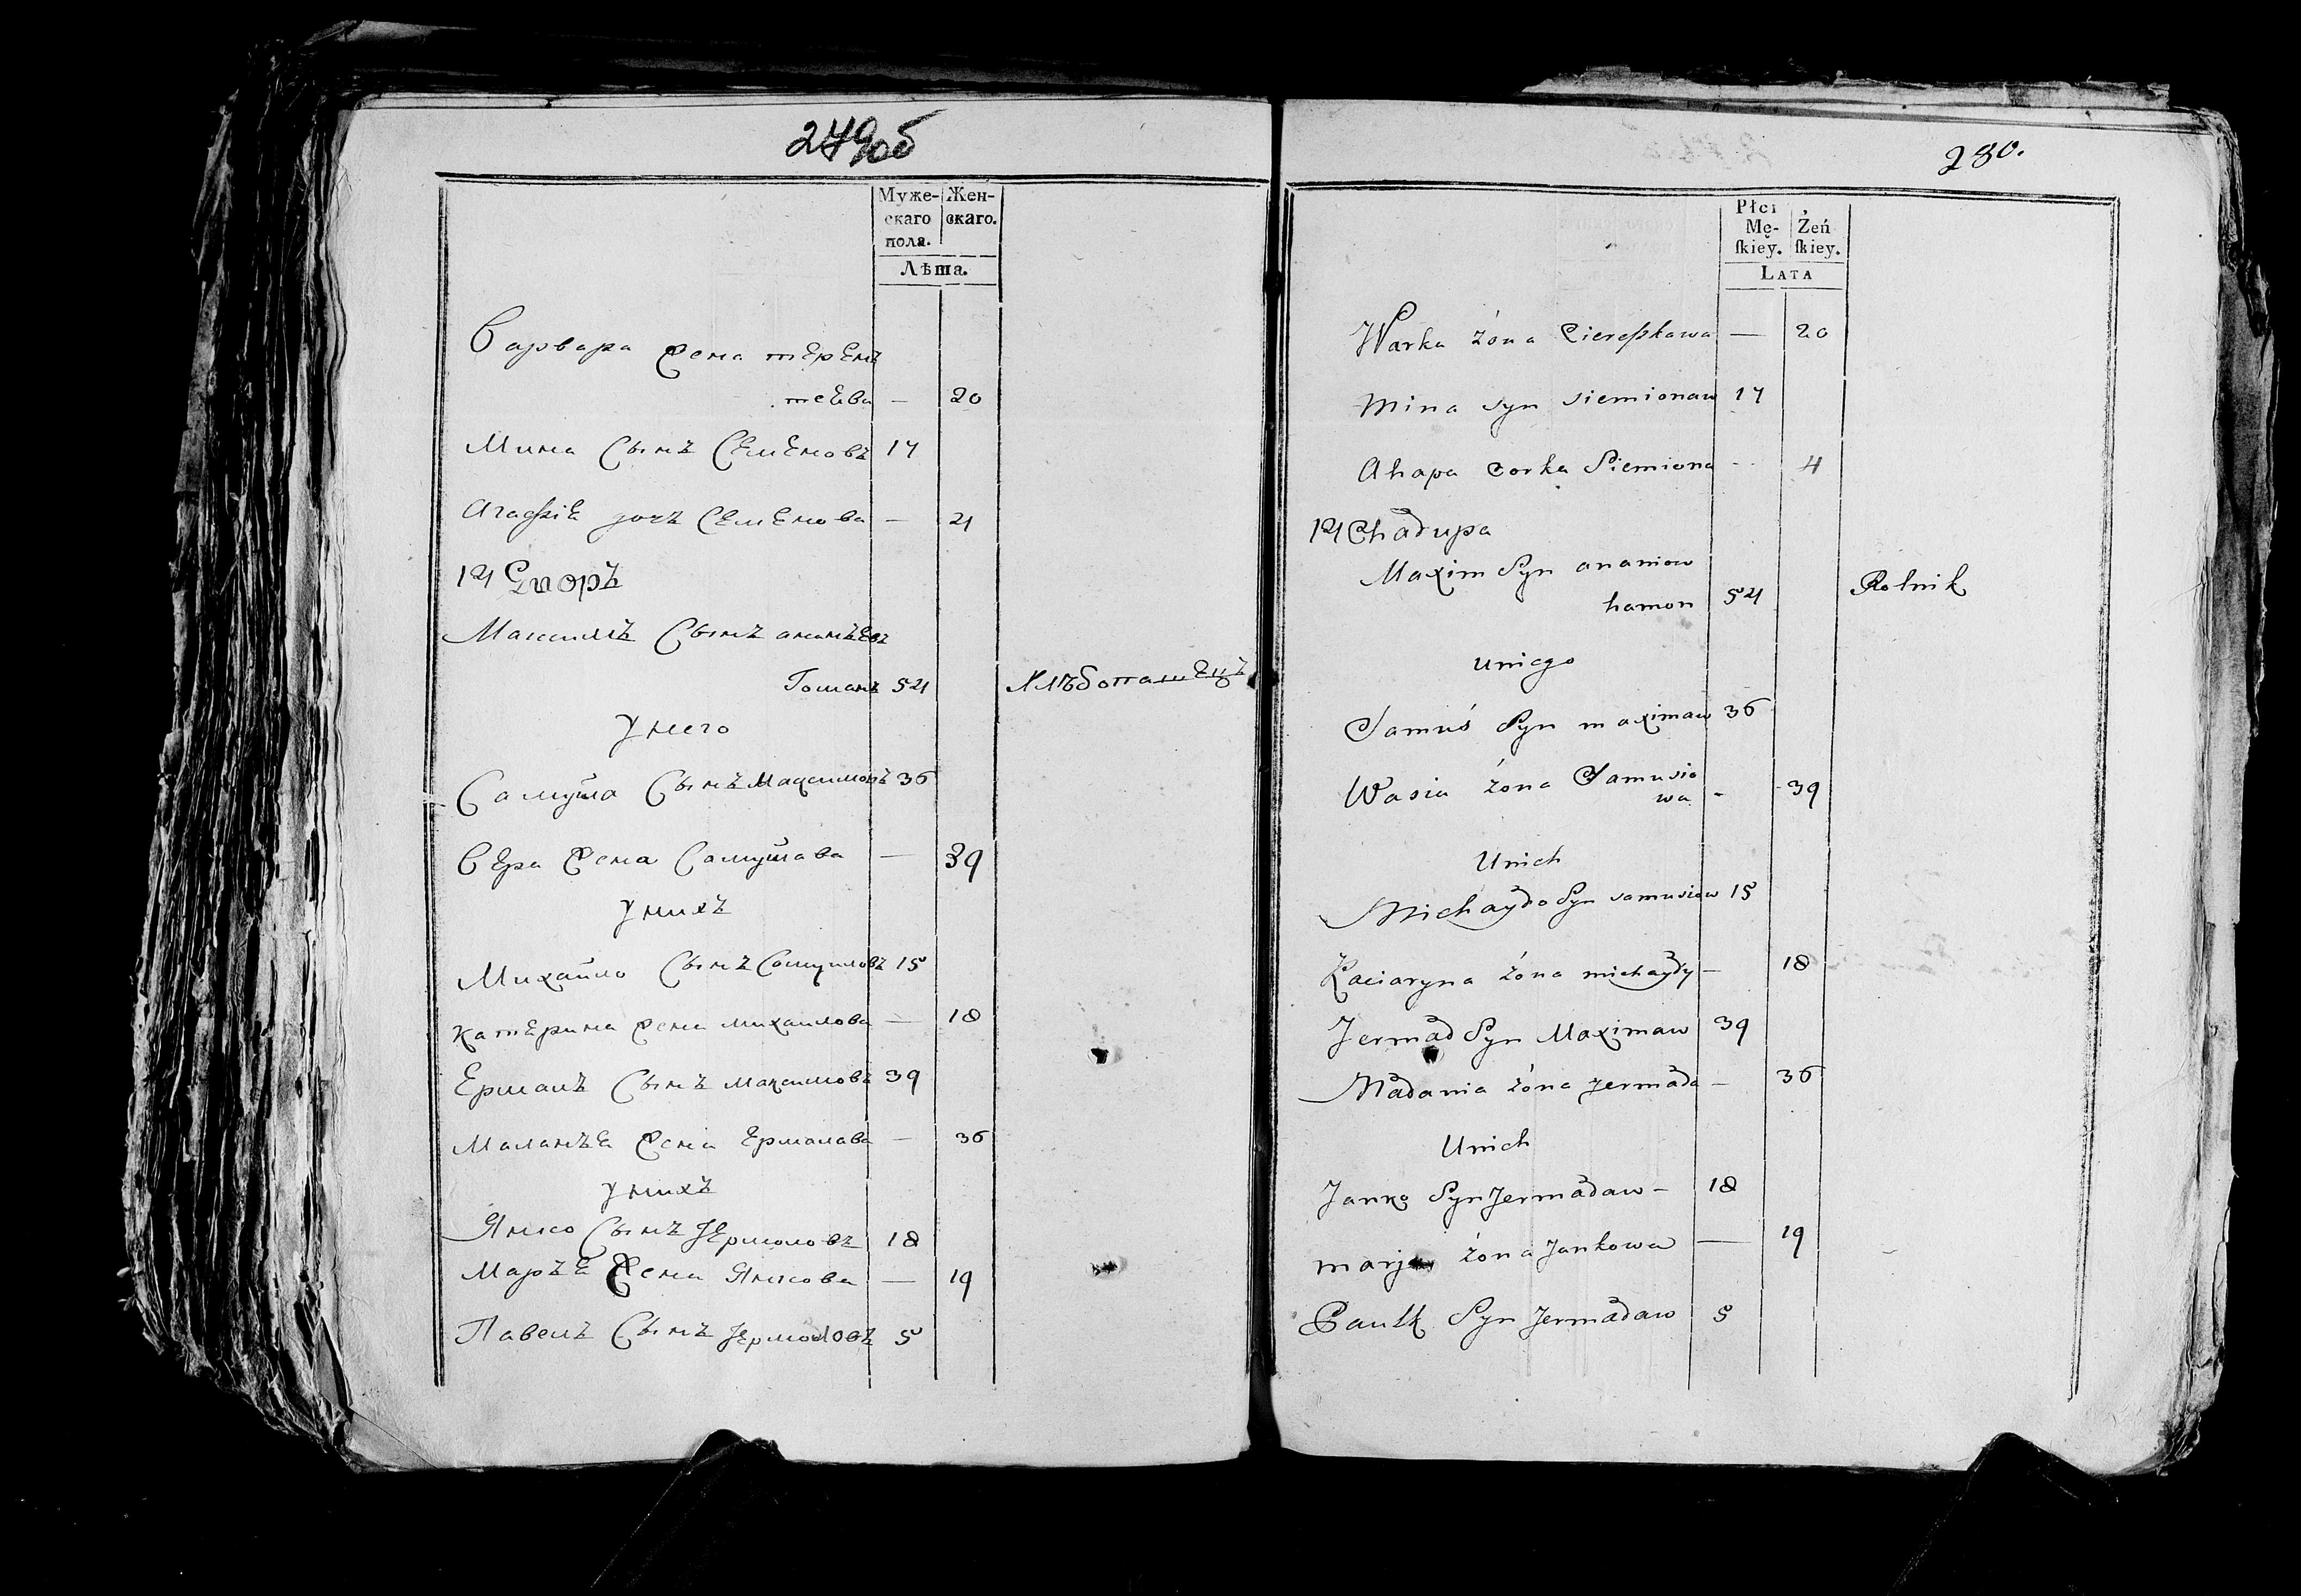 279об
Муже-
скаго
пола.
Жен-
скаго.
Лѣта.
Варвара Жена терен
теева — 20
Мина Сынъ Семеновъ 17
Агафіе дочъ Семенова — 4
14 Дворъ
Максимъ Сынъ ананьевъ
Гоманъ 54 Хлѣбопашецъ
У него
Самуйла Сынъ Максимовъ 36
Вера Жена Самуйлава — 39
У нихъ
Михайло Сынъ Самуиловъ 15
Катерина Жена михаилова — 18
Ермалъ Сынъ максимовъ 39
Маланъа Жена Ермалава — 36
У нихъ
Янко Сынъ Ермоловъ 18
Маръа Жена Янкова — 19
Павелъ Сынъ Ермоловъ 5
280.
Płci
Mę-
ſkiey.
Żeń
ſkiey.
LATA
Warka żona Ciereszkowa — 20
Mina syn siemionaw 17
Ahapa Corka Siemiona - 4
14 Chałupa
Maxim Syn ananiow
hamon 54 Rolnik
u niego
Samuś Syn maximaw 36
Wasia żona Samusio
wa - 39
U nich
Michayło Syn samusiow 15
Kaciaryna żona michayły — 18
Jermał Syn Maximaw 39
Małania żona jermała — 36
U nich
Janko Syn Jermaław - 18
marja żona Jankowa — 19
Paulk Syn Jermaław 5